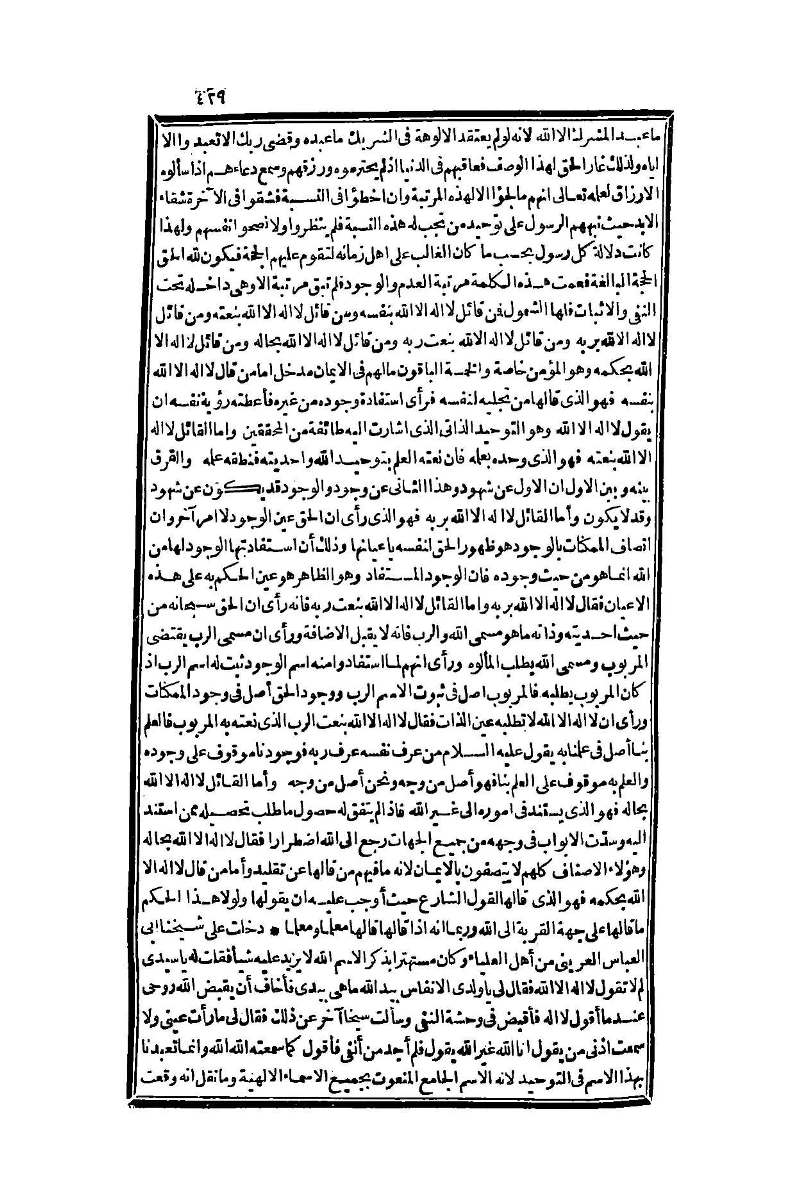 ٤٢٩
ما عبد المشرك الا الله لانه لو لم يعتقد الالوهة فى الشريك ما عبده وقضى ربك الا تعبدوا الا
اياه ولذلك غار الحق لهذا الوصف فعاقبهم فى الدنيا اذ لم يحترموه ورزقهم وسمع دعاءهم اذا سألوه
الارزاق لعلمه تعالى انهم ما لجؤا الا لهذه المرتبة وان اخطؤا فى النسبة فشقوا فى الآخرة شقاء
الابد حيث نبههم الرسول على توحيد من تجب له هذه النسبة فلم ينظروا ولا نصحوا انفسهم ولهذا
كانت دلالة كل رسول بحسب ما كان الغالب على اهل زمانه لتقوم عليهم الحجة فيكون لله الحق
الحجة البالغة فعمت هذه الكلمة مرتبة العدم والوجود فلم تبق مرتبة الا وهى داخلة تحت
النفى والاثبات فلها الشمول فمن قائل لا اله الا الله بنفسه ومن قائل لا اله الا الله بنعته ومن قائل
لا اله الا الله بربه ومن قائل لا اله الا الله بنعت ربه ومن قائل لا اله الا الله بحاله ومن قائل لا اله الا
الله بحكمه وهو المؤمن خاصة والخمسة الباقون ما لهم فى الايمان مدخل اما من قال لا اله الا الله
بنفسه فهو الذى قالها من تجليه لنفسه فرأى استفادة وجوده من غيره فأعطته رؤية نفسه ان
يقول لا اله الا الله وهو التوحيد الذاتى الذى اشارت اليه طائفة من المحققين واما القائل لا اله
الا الله بنعته فهو الذى وحده بعلمه فان نعته العلم بتوحيد الله واحديته فنطقه علمه والفرق
بينه وبين الاول ان الاول عن شهود وهذا الثانى عن وجود والوجود قد يكون عن شهود
وقد لا يكون وأما القائل لا اله الا الله بربه فهو الذى رأى ان الحق عين الوجود لا امر آخر وان
اتصاف الممكنات بالوجود هو ظهور الحق لنفسه باعيانها وذلك أن استفادتها الوجود لها من
الله انما هو من حيث وجوده فان الوجود المستفاد وهو الظاهر هو عين الحكم به على هذه
الاعيان فقال لا اله الا الله بربه واما القائل لا اله الا الله بنعت ربه فانه رأى ان الحق سبحانه من
حيث احديته وذاته ما هو مسمى الله والرب فانه لا يقبل الاضافة ورأى ان مسمى الرب يقتضى
المربوب ومسمى الله يطلب المألوه ورأى انهم لما استفادوا منه اسم الوجود ثبت له اسم الرب اذ
كان المربوب يطلبه فالمربوب اصل فى ثبوت الاسم الرب ووجود الحق أصل فى وجود الممكنات
ورأى ان لا اله الا الله لا تطلبه عين الذات فقال لا اله الا الله بنعت الرب الذى نعته به المربوب فالعلم
بنا أصل فى علمنا به يقول عليه السلام من عرف نفسه عرف ربه فوجودنا موقوف على وجوده
والعلم به موقوف على العلم بنا فهو أصل من وجه ونحن أصل من وجه وأما القائل لا اله الا الله
بحاله فهو الذى يستند فى اموره الى غير الله فاذا لم يتفق له حصول ما طلب تحصيله ممن استند
اليه وسدت الابواب فى وجهه من جميع الجهات رجع الى الله اضطرارا فقال لا اله الا الله بحاله
وهؤلاء الاصناف كلهم لا يتصفون بالايمان لانه ما فيهم من قالها عن تقليد وأما من قال لا اله الا
الله بحكمه فهو الذى قالها لقول الشارع حيث أوجب عليه ان يقولها ولولا هذا الحكم
ما قالها على جهة القربة الى الله وربما انه اذا قالها قالها معلما ومعلما * دخلت على شيخنا ابى
العباس العربى من أهل العلياء وكان مستهترا بذكر الاسم الله لا يزيد عليه شيأ فقلت له يا سيدى
لم لا تقول لا اله الا الله فقال لى يا ولدى الانفاس بيد الله ما هى بيدى فأخاف أن يقبض الله روحى
عند ما أقول لا اله فأقبض فى وحشة النفى وسألت شيخا آخر عن ذلك فقال لى ما رأت عينى ولا
سمعت اذنى من يقول انا الله غير الله يقول فلم أجد من أنفى فأقول كما سمعته الله الله وانما تعبدنا
بهذا الاسم فى التوحيد لانه الاسم الجامع المنعوت بجميع الاسماء الالهية وما نقل انه وقعت